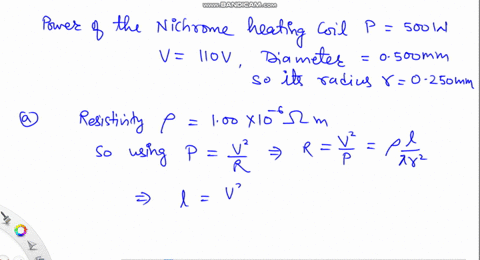 WWW.BANDICAM.COM
Power of the Nichrome heating coil P = 500W
V = 110V, Diameter = 0.500mm
so its radius r = 0.250mm
ⓐ Resistivity ρ = 1.00 × 10⁻⁶ Ω m
so using P = V²/R ⇒ R = V²/P = ρ l/πr²
⇒ l = V²